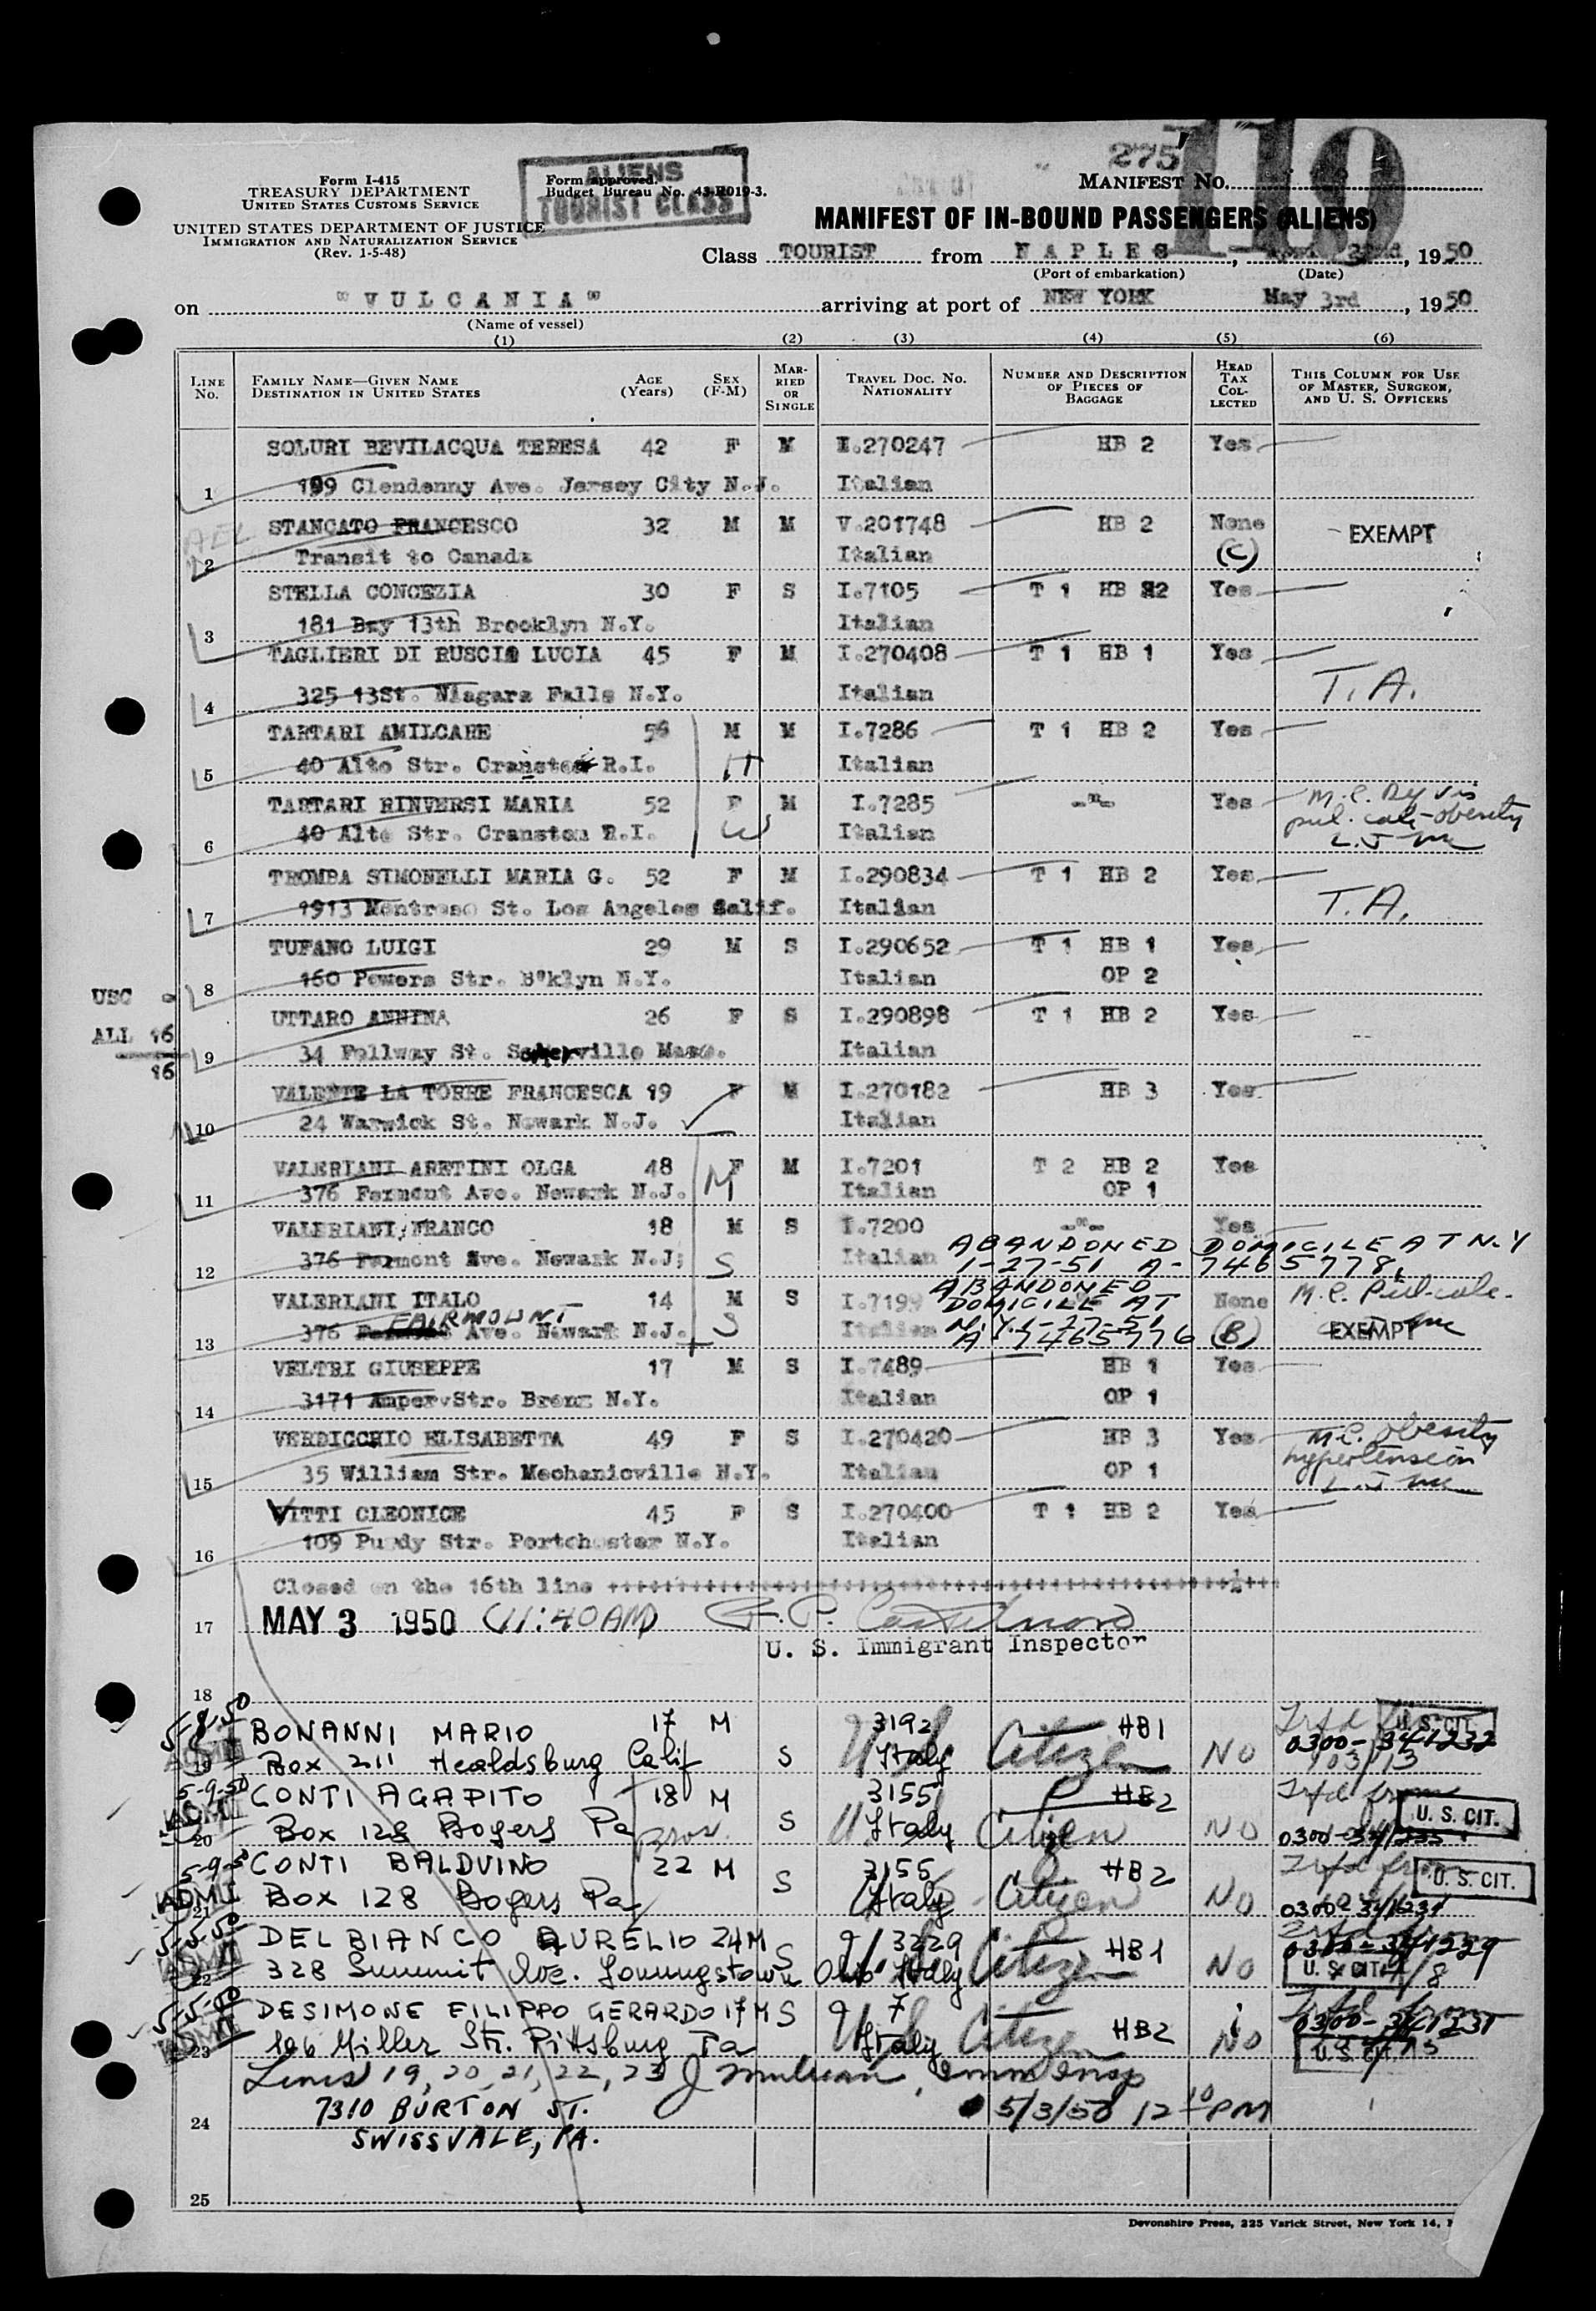 275
119
Form I-415
TREASURY DEPARTMENT
UNITED STATES CUSTOMS SERVICE
UNITED STATES DEPARTMENT OF JUSTICE
IMMIGRATION AND NATURALIZATION SERVICE
(Rev. 1-5-48)
Form approved.
Budget Bureau No. 43-R019-3.
ALIENS
TOURIST CLASS
MANIFEST NO.
MANIFEST OF IN-BOUND PASSENGERS (ALIENS)
Class TOURIST from NAPLES, 1950
(Port of embarkation) (Date)
on "VULCANIA" arriving at port of NEW YORK May 3rd, 1950
(Name of vessel)
(1) (2) (3) (4) (5) (6)
LINE NO. FAMILY NAME—GIVEN NAME DESTINATION IN UNITED STATES AGE (Years) SEX (F-M) MARRIED OR SINGLE TRAVEL DOC. NO. NATIONALITY NUMBER AND DESCRIPTION OF PIECES OF BAGGAGE HEAD TAX COLLECTED THIS COLUMN FOR USE OF MASTER, SURGEON, AND U. S. OFFICERS
SOLURI BEVILACQUA TERESA 42 F M I.270247 HB 2 Yes
1 199 Clendenny Ave. Jersey City N.J. Italian
STANCATO FRANCESCO 32 M M V.201748 HB 2 None EXEMPT
2 Transit to Canada Italian (C)
STELLA CONCEZIA 30 F S I.7105 T 1 HB 2 Yes
3 181 Bay 13th Brooklyn N.Y. Italian
TAGLIERI DI RUSCIO LUCIA 45 F M I.270408 T 1 HB 1 Yes
4 325 13St. Niagara Falls N.Y. Italian T.A.
TARTARI AMILCARE 56 M M I.7286 T 1 HB 2 Yes
5 40 Alto Str. Cranston R.I. H Italian
TARTARI RINVERSI MARIA 52 F M I.7285 -"- Yes
6 40 Alto Str. Cranston R.I. W Italian
TROMBA SIMONELLI MARIA G. 52 F M I.290834 T 1 HB 2 Yes
7 1913 Montrose St. Los Angeles Calif. Italian T.A.
TUFANO LUIGI 29 M S I.290652 T 1 HB 1 Yes
8 160 Powers Str. B'klyn N.Y. Italian OP 2
USC
UTTARO ANNINA 26 F S I.290898 T 1 HB 2 Yes
ALL 16
9 34 Fellway St. Somerville Mass. Italian
16
VALENTE LA TORRE FRANCESCA 19 F M I.270182 HB 3 Yes
10 24 Warwick St. Newark N.J. Italian
VALERIANI ARETINI OLGA 48 F M I.7201 T 2 HB 2 Yes
11 376 Farmont Ave. Newark N.J. M Italian OP 1
VALERIANI FRANCO 18 M S I.7200 -"- Yes
12 376 Farmont Ave. Newark N.J. S Italian ABANDONED DOMICILE AT N.Y
1-27-51 A-7465778
VALERIANI ITALO 14 M S I.7199 None
ABANDONED DOMICILE AT N.Y. 1-27-51 A 7465776
13 376 FAIRMOUNT Ave. Newark N.J. S Italian (B) EXEMPT
VELTRI GIUSEPPE 17 M S I.7489 HB 1 Yes
14 3171 Amperv Str. Bronx N.Y. Italian OP 1
VERDICCHIO ELISABETTA 49 F S I.270420 HB 3 Yes M.C. obesity
15 35 William Str. Mechanicville N.Y. Italian OP 1 hypertension
VITTI CLEONICE 45 F S I.270400 T 1 HB 2 Yes
16 109 Purdy Str. Portchester N.Y. Italian
Closed on the 16th line
17 MAY 3 1950 (11:40AM)
U. S. Immigrant Inspector
18
5-8-50 BONANNI MARIO 17 M 3192 HB1 U. S. CIT.
19 Box 211 Healdsburg Calif S Italy Citizen NO 0300-341232
5-9-50 CONTI AGAPITO 18 M 3155 HB2 Trfd from
20 Box 128 Bogers Pa S Italy Citizen NO U. S. CIT.
5-9-50 CONTI BALDUINO 22 M 3155 HB2 Trfd from
ADMI 21 Box 128 Bogers Pa S Italy Citizen NO U. S. CIT.
5-5-50 DELBIANCO AURELIO 24 M S 3229 HB1
22 328 Summit Ave. Youngstown Ohio Italy Citizen NO U. S. CIT.
5-5-50 DESIMONE FILIPPO GERARDO 17 M S 7 HB2 Trfd from
23 106 Miller Str. Pittsburg Pa Italy Citizen NO U. S. CIT.
Lines 19, 20, 21, 22, 23 Imm Insp
24 7310 BURTON ST. 5/3/50 12 10 PM
SWISSVALE, PA.
25
Devonshire Press, 225 Varick Street, New York 14,